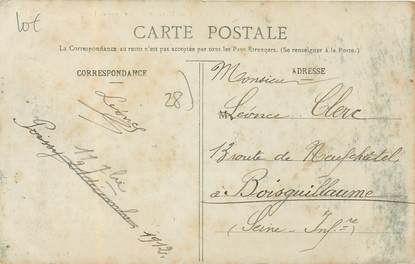 lot
CARTE POSTALE
La Correspondance au recto n'est pas acceptée par tous les Pays Étrangers. (Se renseigner à la Poste.)
CORRESPONDANCE
ADRESSE
Léonce
28)
Poigny
1912
Monsieur
M Léonce Clerc
13 route de Neufchâtel
à Boisguillaume
(Seine-Infre)